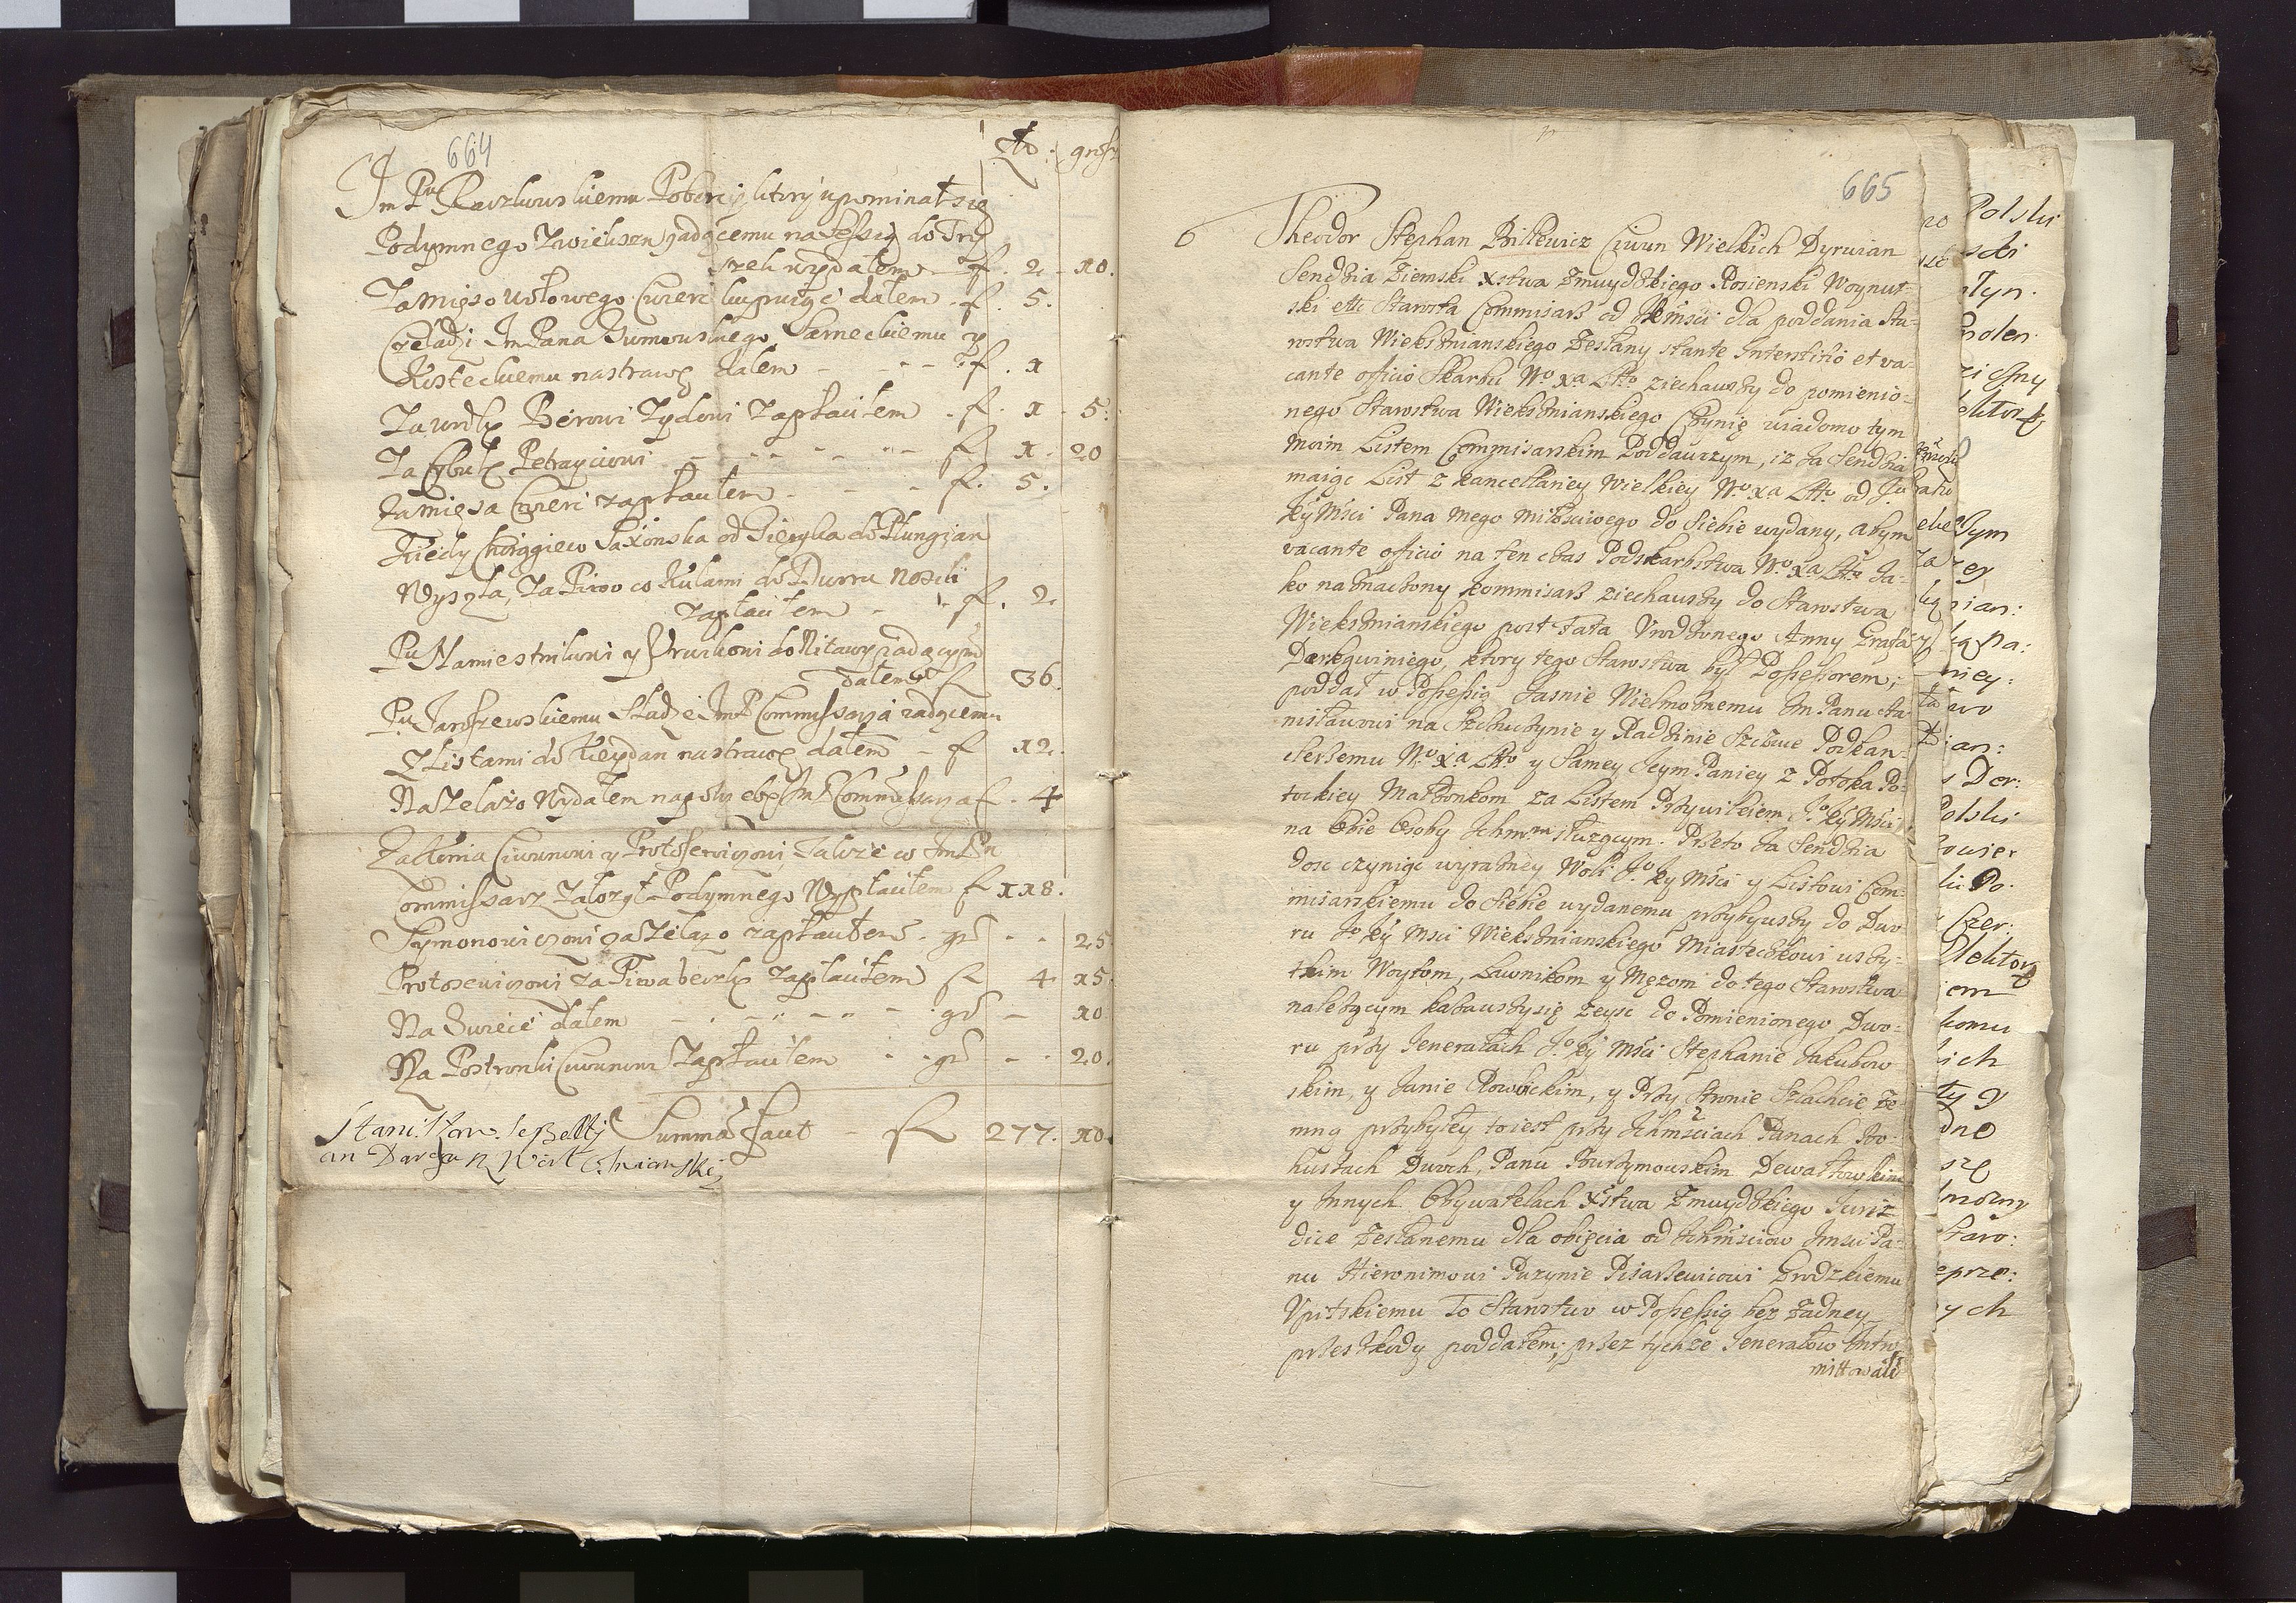 664
grosz
Im Pu Raszkowskiemu Poborcy ktory upominał się
Podymnego Zwiekszn jadącemu na Sessię do Try
szek wydałem f. 2 - 10.
Za mięso wołowego Cwierc kupuiąc dałem f. 5.
Czeladzi Im Pana Gumowskiego Sarneckiemu y
Kosteckiemu na strawę dałem f. 1
Za wodkę Berowi Zydowi zapłaciłem f. 1 - 5.
Za Cybulę Petrayciowi f. 1. 20
Za mięsa Cwierc zapłaciłem f. 5.
Kiedy Chorągiew Saxonska od Sieyka do Płungian
Wyszła, Za Piwo co Kulami do Dworu nosili
zapłaciłem f. 2
Pu Namiestnikowi y Pruszkowi do Mitawy iadącym
dałem f 36.
Pu Jaroszewskiemu Słudze Im P Commissarza iadącemu
z Listami do Keydan na strawę dałem f 12.
Na Zelazo Wydałem na potrzebę Im P Commissarza f. 4
Za Konia Ciwunowi y Protosewiczowi, Także co Im Pn
Commissarz założył Podymnego Wypłaciłem f 118.
Symonowiczowi za Zelazo zapłaciłem gr 25
Protosewiczowi za Piwa beczkę zapłaciłem f 4 15.
Na Zwiece dałem gr 10
Na Postronki Ciwunowi Zapłaciłem gr 20.
Summa facit f 277. 10.
665
6 Theodor Stephan Billewicz Ciwun Wielkich Dyrwian
Sendzia Ziemski Xstwa Zmuydzkiego Rosienski Woynut-
ski ett Starosta Commisarz od JKrmsci dla poddania Sta-
rostwa Wieksznianskiego Zesłany stante Interstitio et va-
cante officio Skarbu Wo Xa Ltto ziechawszy do pomienio-
nego Starostwa Wiekszniánskiego Czynię wiadomo tym
moim Listem Commisarskim Poddawczym, iz Ja Sendzia
maiąc List z Kancellariey Wielkiey Wo Xa Ltto od Jo
Kỳ Msci Pana mego miłosciwego do Siebie wydany, abym
vacante officio na ten czas Podskarbstwa Wo Xa Ltto Ja-
ko naznaczony Kommisarz ziechawszy do Starostwa
Wiekszniańskiego post Fata Vrodzonego Anny Grafa
Darkgwiniego, ktory tego Starostwa był Possessorem,
poddał w Possessią Jasnie Wielmoznemu Im Panu Sta-
nisławowi na Szczuczynie y Radzinie Szczuce Podkan-
clerzemu Wo Xa Ltto y Samey Jeym Paniey z Potoka Po-
tockiey Małzonkom za Listem Przywileiem Jo Kỳ Msci
na Obie Osoby Ichmm słuzącym. Przeto Ja Sendzia
dosc czyniąc wyrazney Woli Jo Kỳ Msci y Listowi Com-
misarskiemu do Siebie wydanemu przybywszy do Dwo-
ru Jo Kỳ Msci Wiekszniańskiego Miasteczkowi wszy-
tkim Woytom, Ławnikom y Męzom do tego Starostwa
nalezącym kazawszy się zeysc do Pomienionego Dwo-
ru przy Jenerałach Jo Kỳ Msci Stephanie Jakubow
skim, y Janie Rowbickim, y Przy Stronie Szlachcie ze
mną przybyłey to iest przy Ichmsciach Panach Bo-
husłach Dwoch, Panu Burzymowskim Dewałtowskim
y Innych Obywatelach Xstwa Zmuydzkiego Juriz
dice Zesłanemu dla obięcia od Ichmsciow Imsci Pa-
nu Hieronimowi Puzynie Pisarzewicowi Grodzkiemu
Vpitskiemu To Starostwo w Possessią bez Zadney
przeszkody poddałem; przez tychze Jenerałow Intro-
mittowałe
Polski
Dym
zey
nian:
niey:
Der:
Polski
lic Po.
Czer:
komu
ich
Staro:
ych